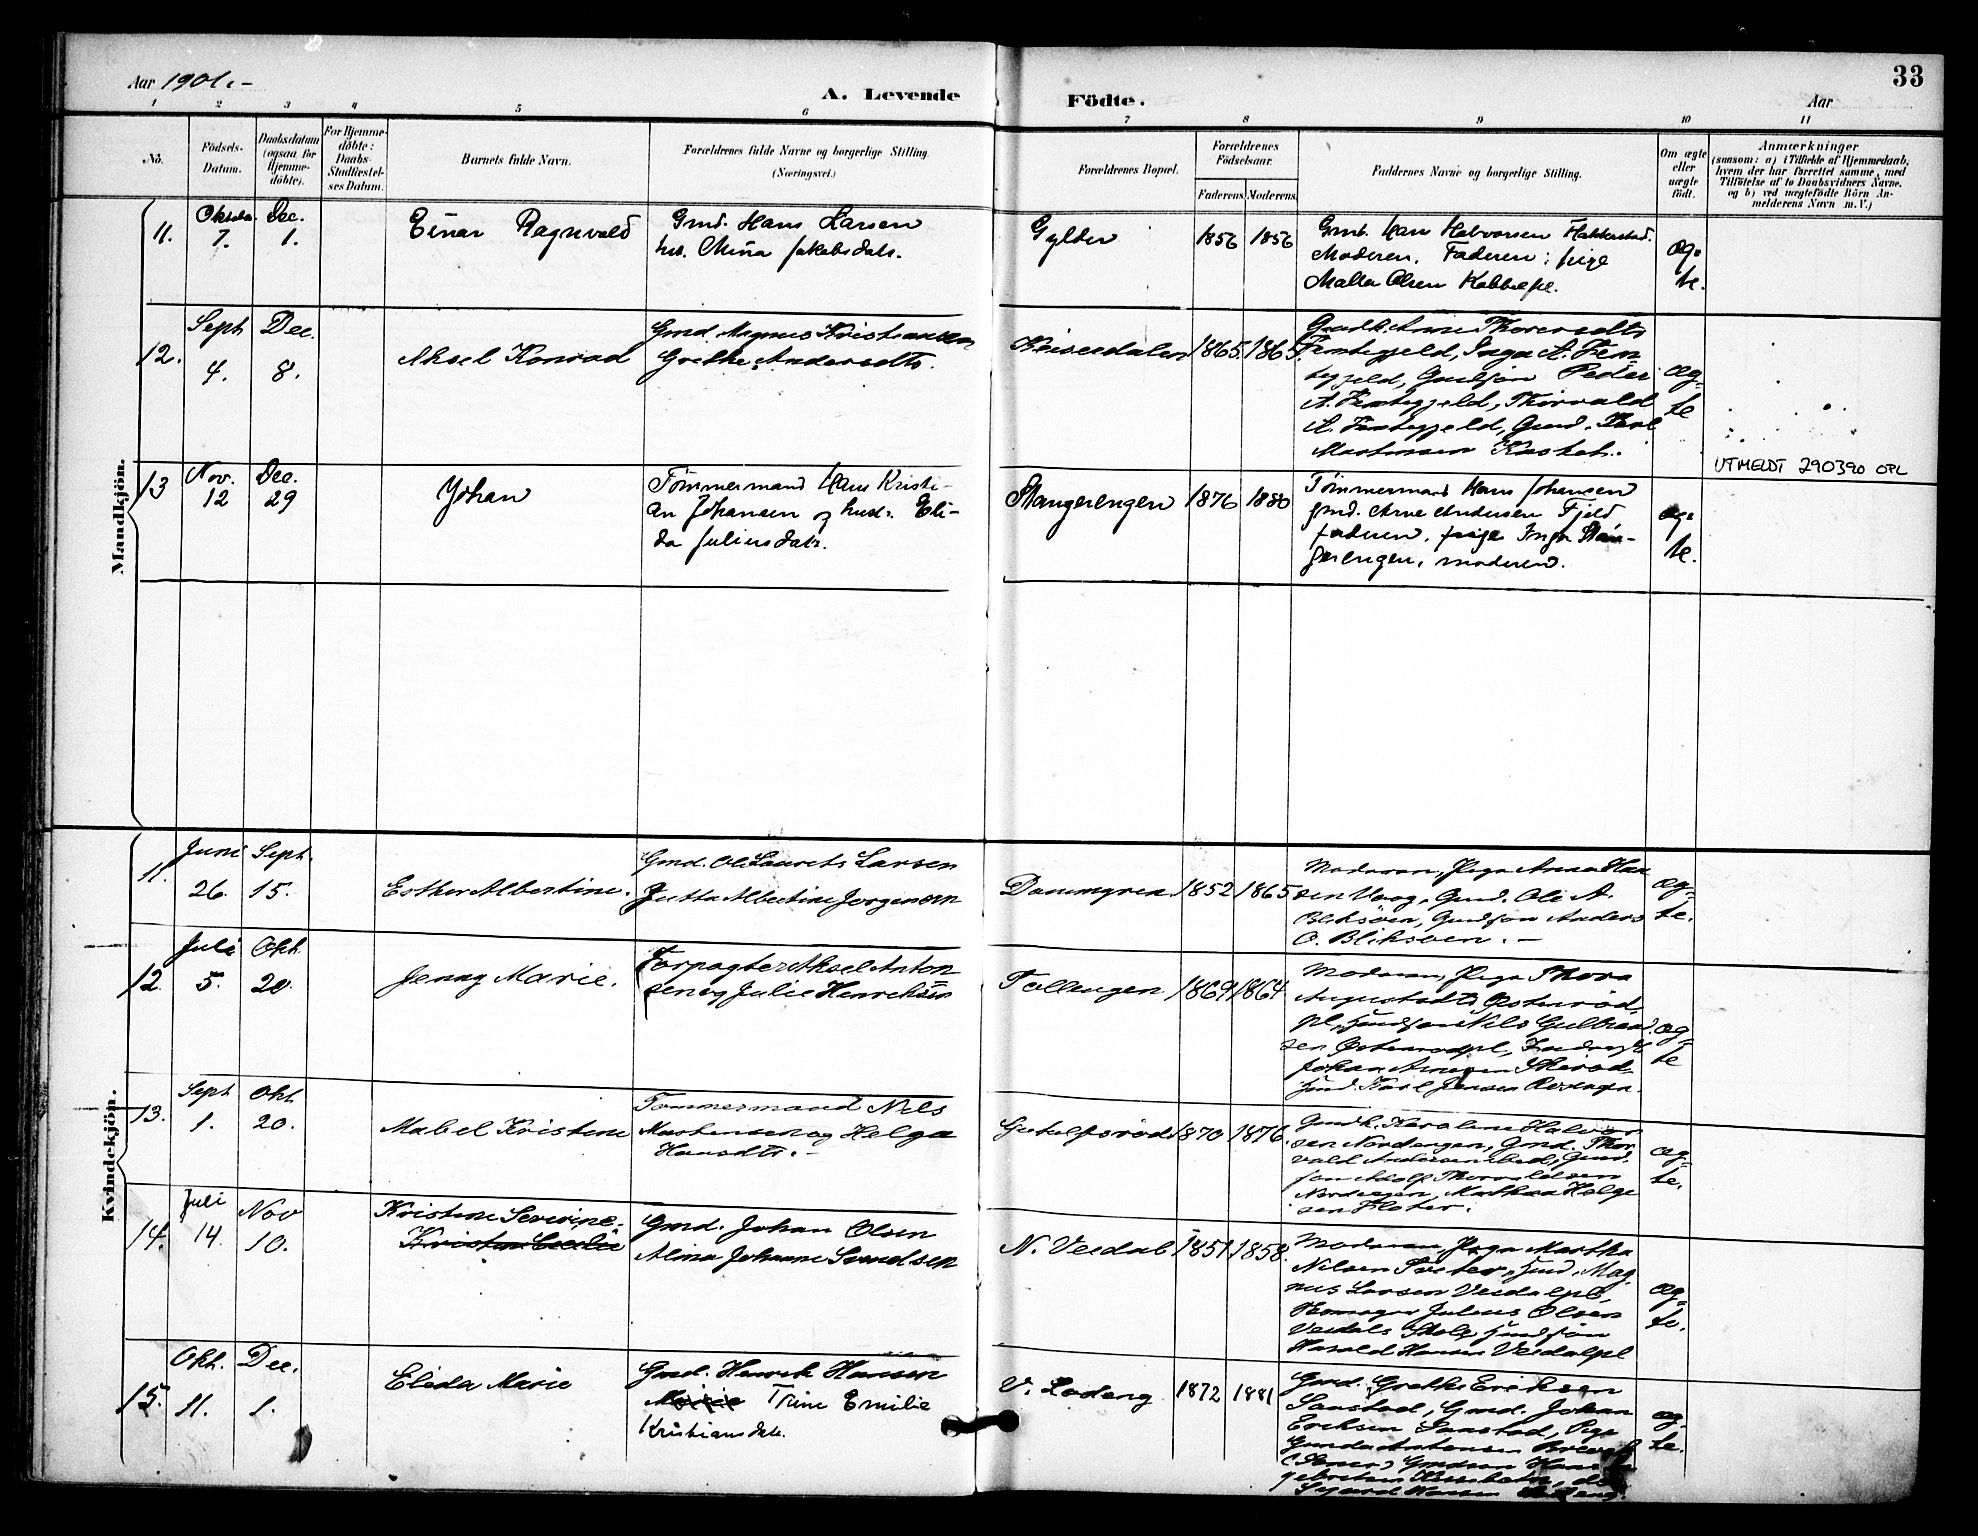 Aar 1901.-
A. Levende
Födte.
Aar
33
1 2 3 4 5 6 7 8 9 10 11
No.
Födsels-
Datum.
Daabsdatum
(ogsaa for
Hjemme-
döbte).
For Hjemme-
döbte:
Daabs-
Stadfæstel-
ses Datum.
Barnets fulde Navn.
Forældrenes fulde Navne og borgerlige Stilling.
(Næringsvei.)
Forældrenes Bopæl.
Forældrenes
Födselsaar.
Faderens. Moderens.
Faddernes Navne og borgerlige Stilling.
Om ægte
eller
uægte
födt.
Anmærkninger
(saasom: a) i Tilfælde af Hjemmedaab,
hvem der har forrettet samme, med
Tilföielse af to Daabsvidners Navne,
og b) ved uægtefödte Börn An-
melderens Navn m. V.)
Mandkjön.
11.
Oktober
7.
Dec.
1.
Einar Ragnvald
Gmd. Hans Larsen
Mina Jakobsdatr.
Gylder
1856 1856
Gmb. Hans Halvorsen Hakkestad.
Moderen. Faderen: pige
Malla Olsen
æg-
te.
12.
Sept
4.
Dec.
8.
Aksel Konrad
Gmd. Magnus Kristiansen
Grethe Andersdtr.
Keiserdalen
1865. 1865.
Gmdk. Anne Thorersdtr
Inga A.
Gmdsøn Peder
Thorvald
Gmd. Karl
Martinsen Kastet.
æg-
te
13
Nov.
12
Dec.
29
Johan
Tømmermand Hans Kristi-
an Johansen og hust. Eli-
da Juliusdatr.
Stangerengen
1876 1880
Tømmermand Hans Johansen
gmd. Arne Andersen Fjeld
faderen, pige Inga Stan-
gerengen, moderen.
æg-
te.
UTMELDT 290390 OPL
Kvindekjön.
11.
Juni
26.
Sept.
15.
Esther Albertine.
Gmd. Ole Laurits Larsen
Jutta Albertine Jørgensen
Dammyren
1852 1865
Moderen, Pige Anna Han
sen Haag, Gmd. Ole A.
Bliksøen, Gmdsøn Anders
O. Bliksøen. -
æg-
te.
12.
Juli
5.
Okt
20.
Jenny Marie.
Forpagter Aksel Anton
sen og Julie Henriksen
Tollengen
1869 1864
Moderen, Pige Thora
Augustsdtr Østenrød-
pl., Husmdsøn Nils Gulbrand
sen Østenrødpl,
Johan Arnesen Skirød-
Karl Jensen
æg-
te
13.
Sept
1.
Okt.
20.
Mabel Kristine
Tømmermand Nils
Martinsen og Helga
Hansdtr. -
1870 1876.
Gmdk. Karoline Halvor
sen Nordengen, Gmd. Thor
vald Andersen
søn Adolf Thorvaldsen
Nordengen, Mathea Helge
sen Floter.
æg-
te.
14.
Juli
14.
Nov
10.
Kristine Severine.
Kristine Cecilie
Gmd. Johan Olsen
Alina Johanne Svendsen
N. Veidal
1851 1858.
Moderen, Pige Martha
Nilsen Sæter, Husmd. Mag-
nus Larsen Veidalpl,
Julius Olsen
Harald Hansen Veidalpl
æg-
te.
15.
Okt.
11.
Dec.
1.
Elida Marie
Gmd. Henrik Hansen
Marie Trine Emilie
Kristiansdatr.
V. Loderg
1872 1881
Gmd. Grethe Eriksen
Saastad, Gmd. Johan
Eriksen Saastad, Pige
Gunda Antonsen
Sigurd Hansen
æg-
te.